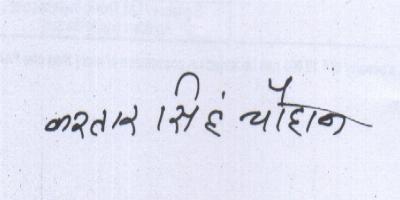 करतार सिहं चौहान